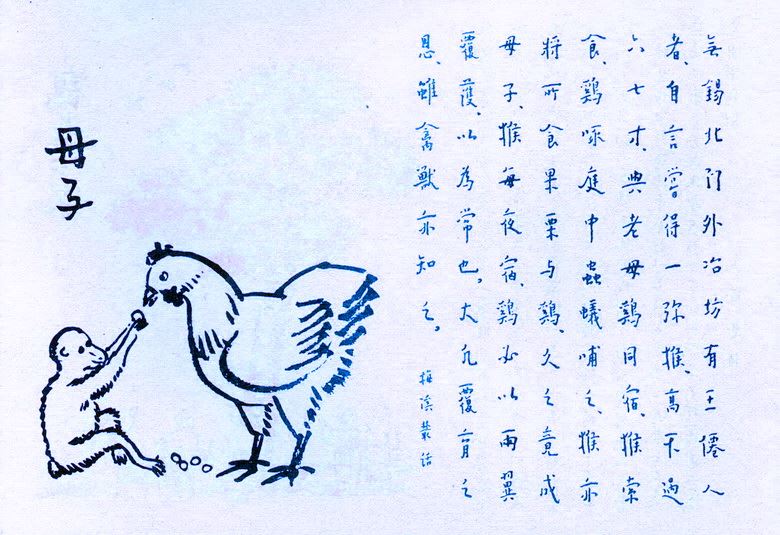 無錫北門外冶坊有王僊人
者、自言嘗得一弥猴、高不過
六七寸、與老母鷄同宿、猴索
食、鷄啄庭中蟲蟻哺之、猴亦
將所食果栗与鷄、久之竟成
母子、猴每夜宿、鷄必以兩翼
覆護、以為常也。大凡覆育之
恩、雖禽獸亦知之。
梅溪叢話
母子